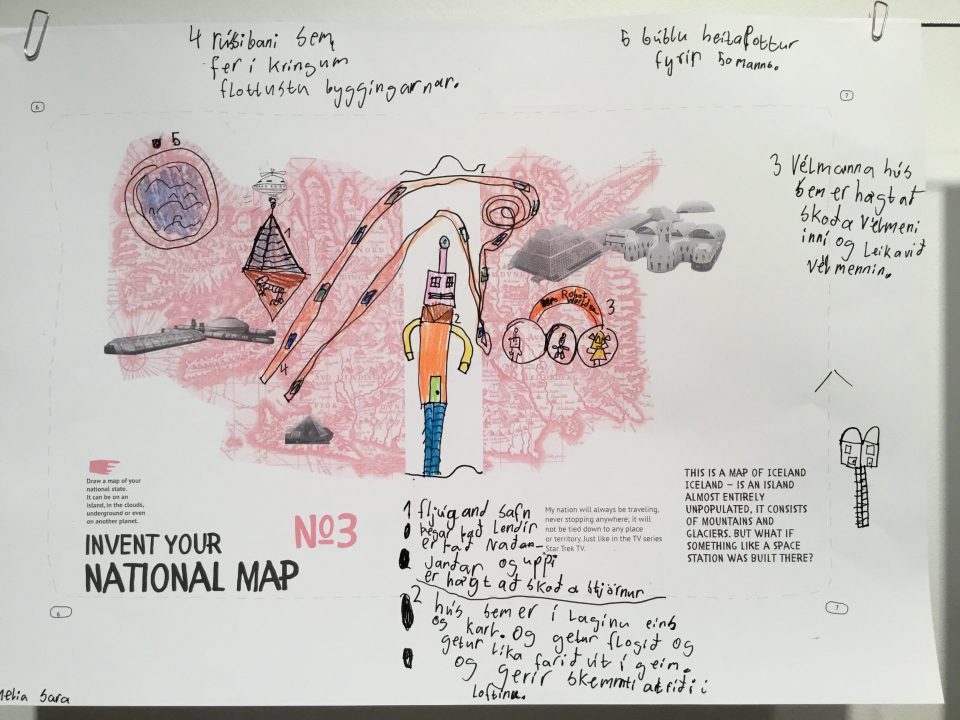 4 rúsibani sem
fer í kringum
flottustu byggingarnar.
5 búblu heitapottur
fyrir 50 manns.
6
7
5
1
3 Vélmanna hús
sem er hægt að
skoða Vélmeni
inni og Leika við
Vélmennin.
Robot
World
3
2
4
Draw a map of your
national state.
It can be on an
island, in the clouds,
underground or even
on another planet.
INVENT YOUR
NATIONAL MAP
No3
1 fljúgand safn
þegar það lendir
er það Naðan-
Jarðar og uppi
er hægt að skoða stjörnur
My nation will always be traveling,
never stopping anywhere; it will
not be tied down to any place
or territory Just like in the TV series
Star Trek TV.
THIS IS A MAP OF ICELAND
ICELAND – IS AN ISLAND
ALMOST ENTIRELY
UNPOPULATED, IT CONSISTS
OF MOUNTAINS AND
GLACIERS. BUT WHAT IF
SOMETHING LIKE A SPACE
STATION WAS BUILT THERE?
2 hús sem er í Laginu eins
og karl. Og getur flogið og
getur lika farið út í geim.
og gerir skemmti atriði í
Loftinu.
6
7
Sara